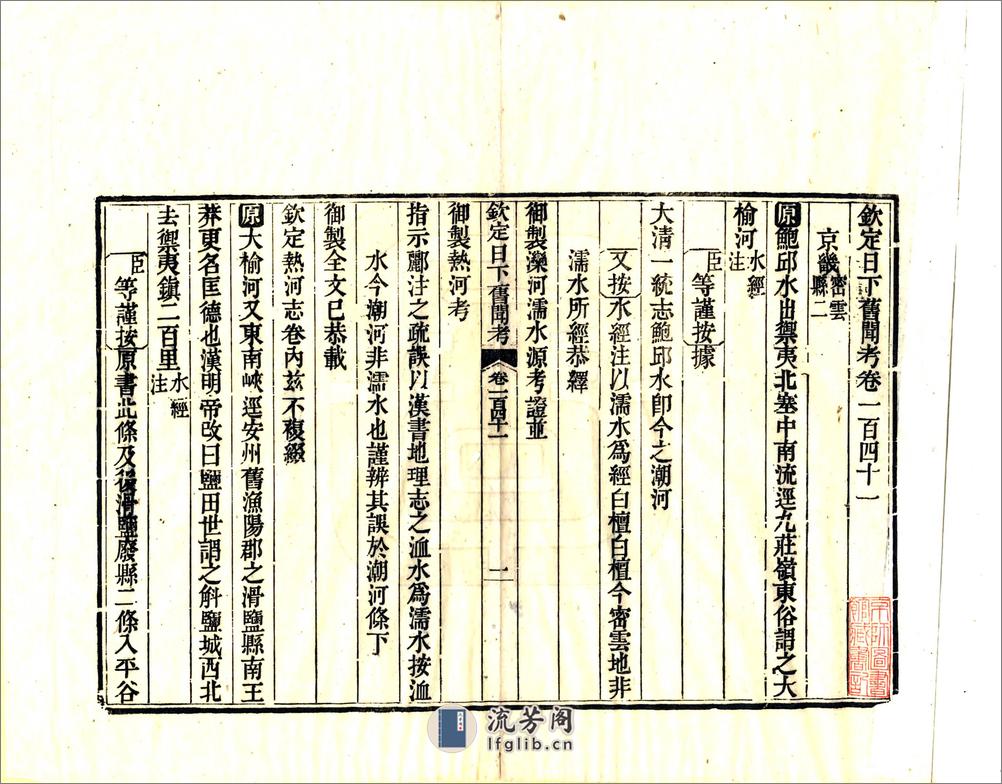 欽定日下舊聞考卷一百四十一
京畿密雲縣二
原鮑邱水出禦夷北塞中南流逕九莊嶺東俗謂之大
榆河水經注
臣等謹按據
大清一統志鮑邱水即今之潮河
又按水經注以濡水爲經白檀白檀今密雲地非
濡水所經恭繹
御製灤河濡水源考證並
欽定日下舊聞考 卷一百四十一 一
御製熱河考
指示酈注之疏誤以漢書地理志之洫水爲濡水按洫
水今潮河非濡水也謹辨其誤於潮河條下
御製全文已恭載
欽定熱河志卷內茲不複綴
原大榆河又東南峽逕安州舊漁陽郡之滑鹽縣南王
莽更名匡德也漢明帝改曰鹽田世謂之斛鹽城西北
去禦夷鎮二百里水經注
臣等謹按原書此條及後滑鹽廢縣二條入平谷
京師圖書館藏書記
流芳阁
lfglib.cn